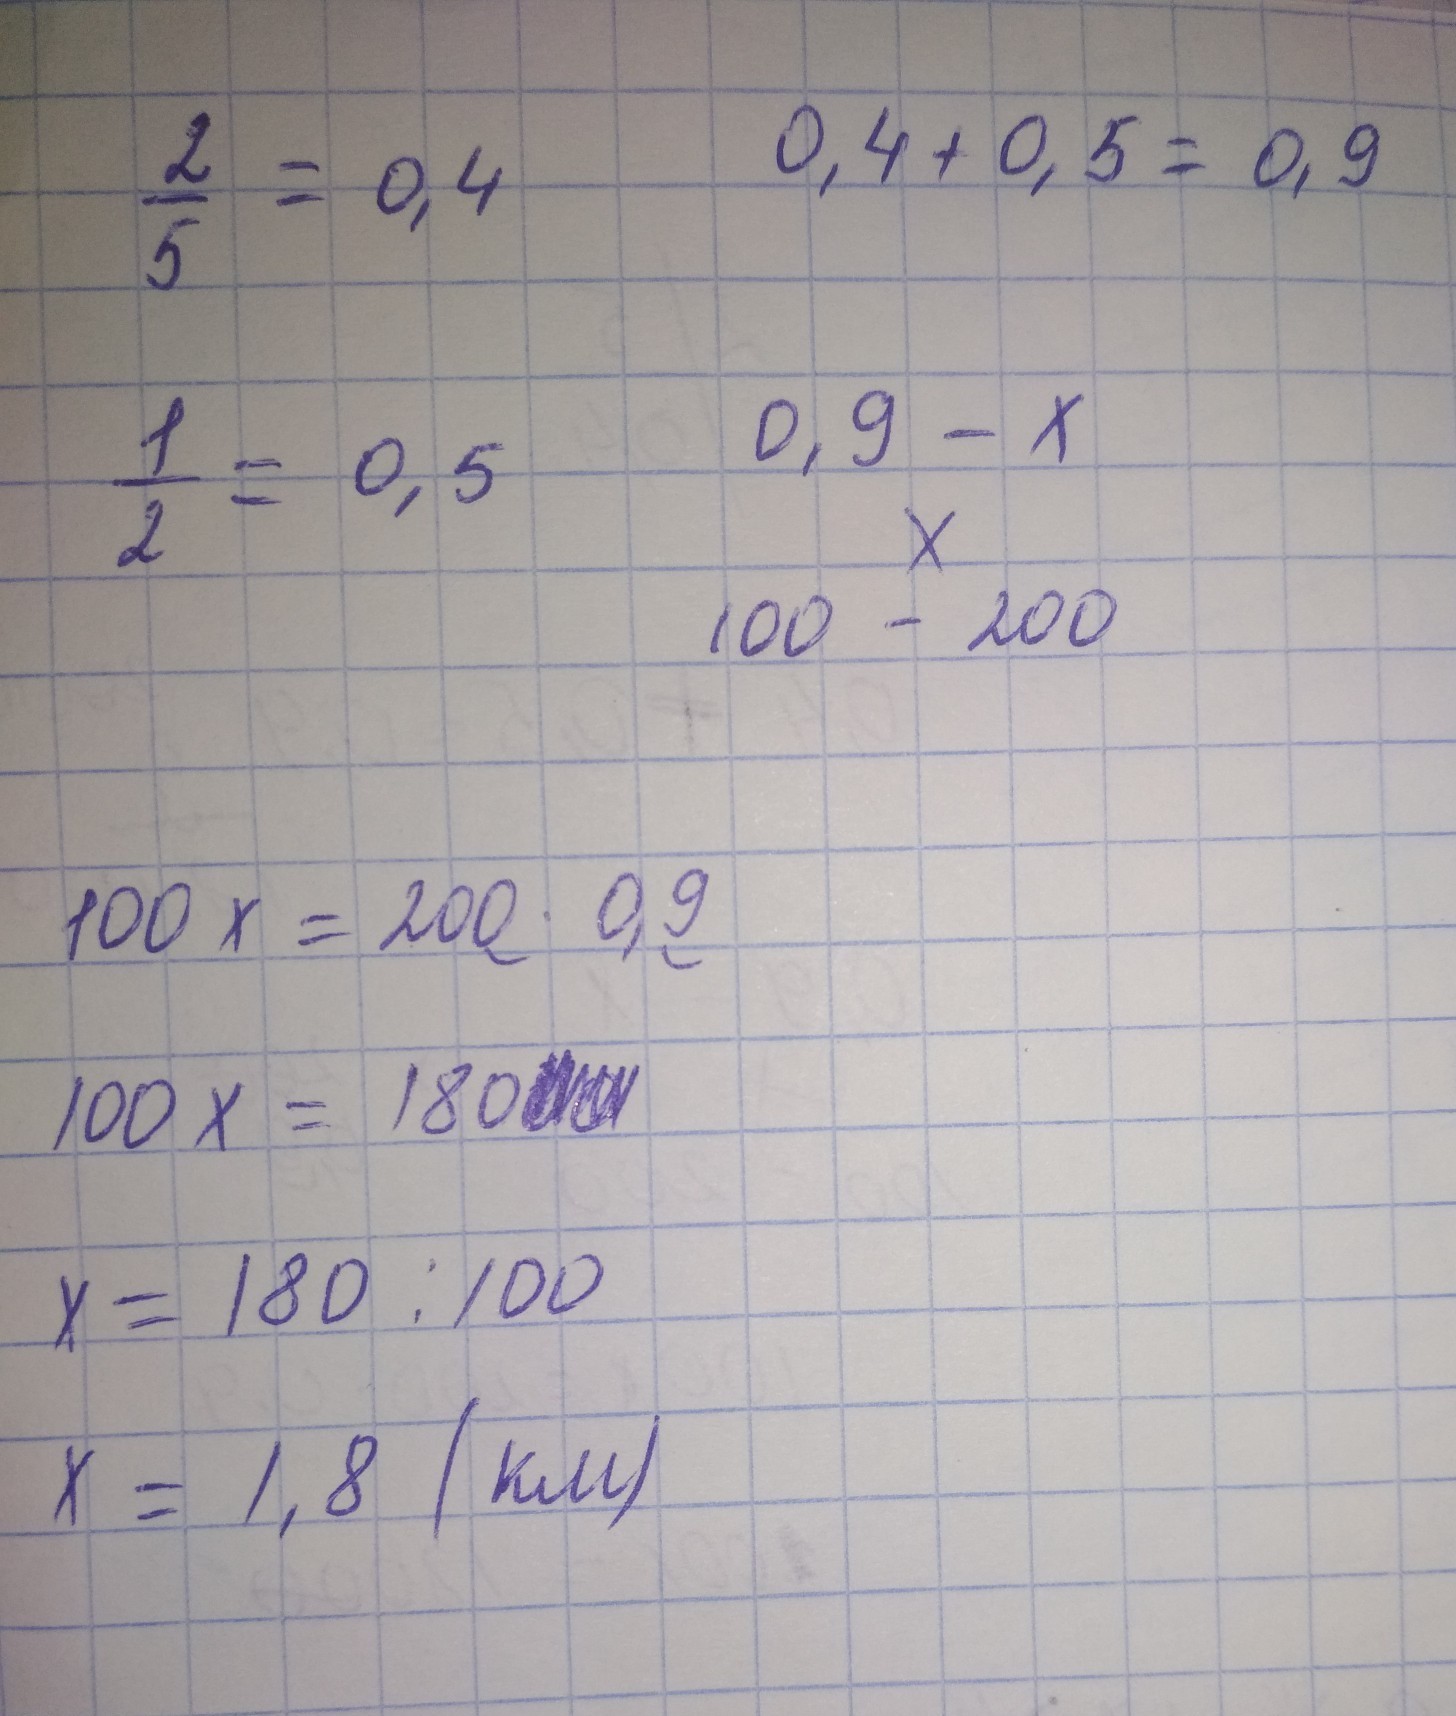 2/5 = 0,4
0,4 + 0,5 = 0,9
1/2 = 0,5
0,9 - x
x
100 - 200
100x = 200 · 0,9
100x = 180
x = 180 : 100
x = 1,8 (км)